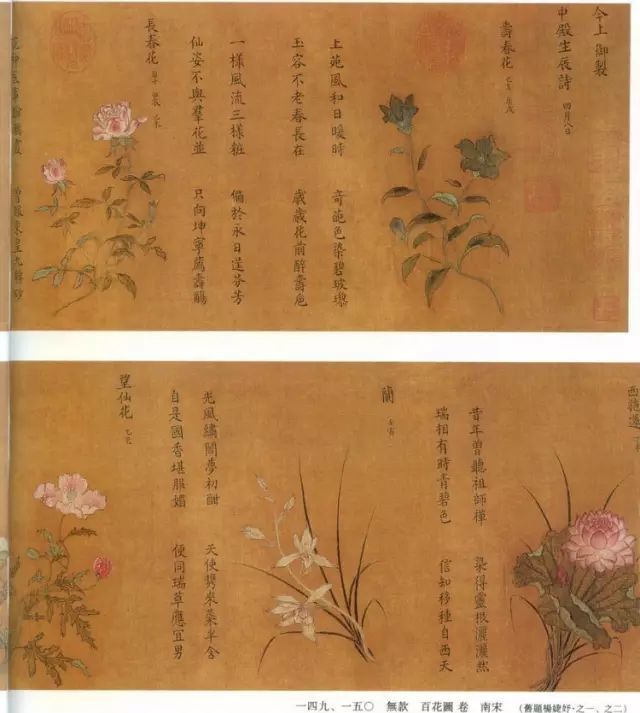 今上 御製
中殿生辰詩 四月八日
壽春花
上苑風和日暖時 奇葩色染碧玻瓈
玉容不老春長在 歲歲花前醉壽卮
一樣風流三樣粧 偏於永日逞芬芳
仙姿不與羣花並 只向坤寧薦壽觴
長春花
曾服東皇九轉砂
昔年曾聽祖師禪 染得靈根灑灑然
瑞相有時青碧色 信知移種自西天
蘭
光風繡閣夢初酣 天使携來葉半含
自是國香堪服媚 便同瑞草應宜男
望仙花
一四九、一五〇 無款 百花圖 卷 南宋 (舊題楊婕妤·之一、之二)